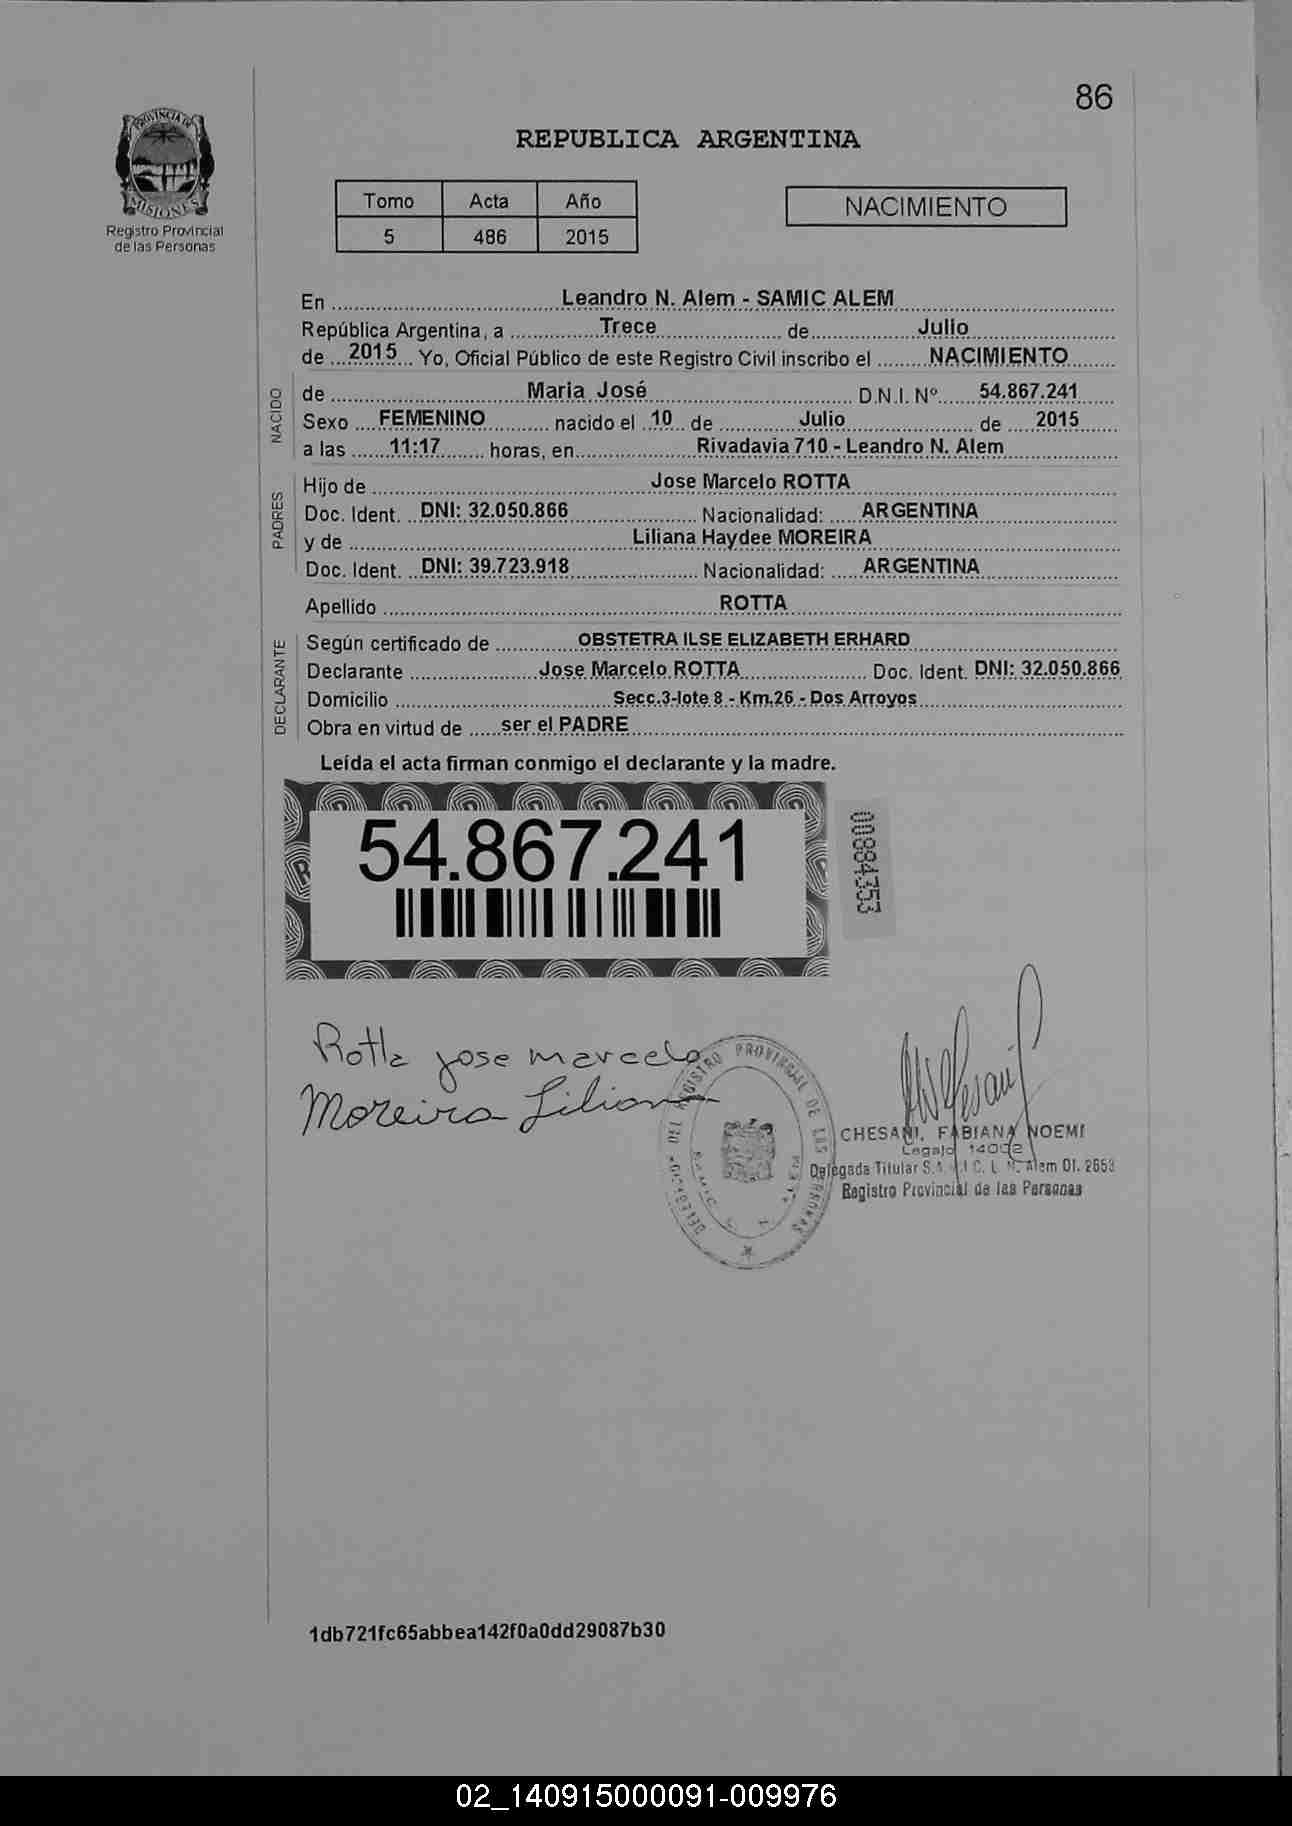 86
PROVINCIA DE
MISIONES
Registro Provincial
de las Personas
REPUBLICA ARGENTINA
Tomo Acta Año
5 486 2015
NACIMIENTO
En Leandro N. Alem - SAMIC ALEM
República Argentina, a Trece de Julio
de 2015 Yo, Oficial Público de este Registro Civil inscribo el NACIMIENTO
NACIDO
de Maria José D.N.I. Nº 54.867.241
Sexo FEMENINO nacido el 10 de Julio de 2015
a las 11:17 horas, en Rivadavia 710 - Leandro N. Alem
PADRES
Hijo de Jose Marcelo ROTTA
Doc. Ident. DNI: 32.050.866 Nacionalidad: ARGENTINA
y de Liliana Haydee MOREIRA
Doc. Ident. DNI: 39.723.918 Nacionalidad: ARGENTINA
Apellido ROTTA
DECLARANTE
Según certificado de OBSTETRA ILSE ELIZABETH ERHARD
Declarante Jose Marcelo ROTTA Doc. Ident. DNI: 32.050.866
Domicilio Secc.3-lote 8 - Km.26 - Dos Arroyos
Obra en virtud de ser el PADRE
Leída el acta firman conmigo el declarante y la madre.
54.867.241
00884353
Rotta jose marcelo
Moreira Liliana
DEL REGISTRO PROVINCIAL DE LAS PERSONAS
CHESANI, FABIANA NOEMI
Legajo 14002
Delegada Titular L. N. Alem Of. 2653
Registro Provincial de las Personas
1db721fc65abbea142f0a0dd29087b30
02_140915000091-009976